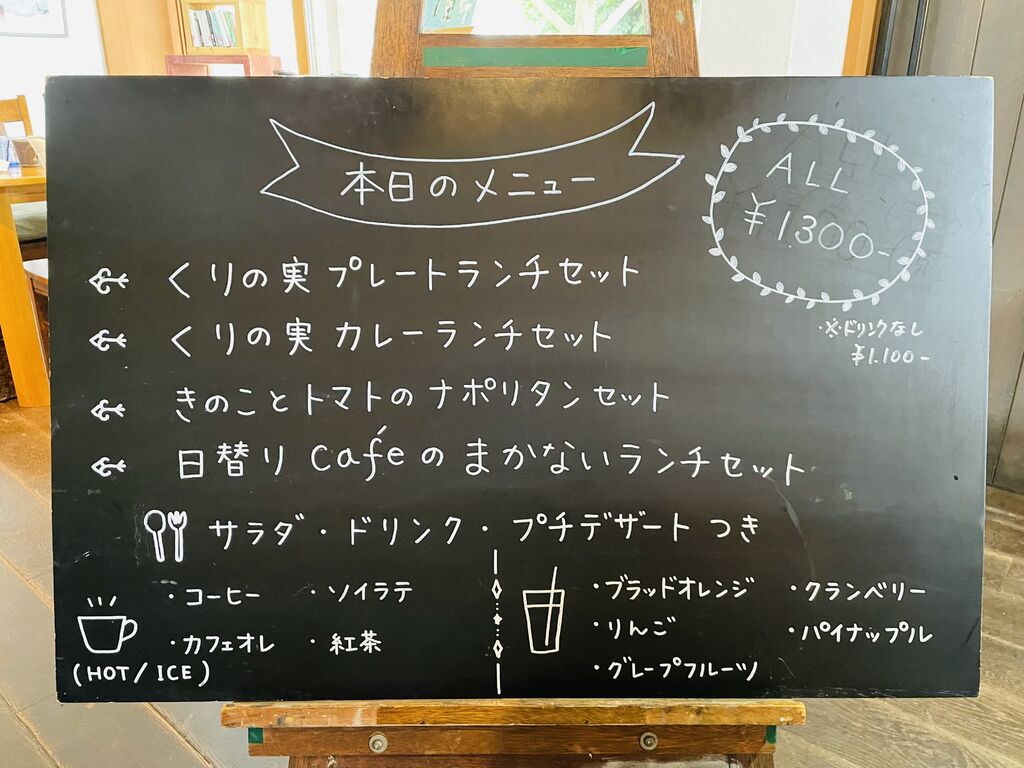 本日のメニュー
ALL
¥1300-
※ドリンクなし
¥1.100-
くりの実 プレートランチセット
くりの実 カレーランチセット
きのことトマトのナポリタンセット
日替り caféのまかないランチセット
サラダ・ドリンク・プチデザートつき
・コーヒー ・ソイラテ
・カフェオレ ・紅茶
(HOT/ICE)
・ブラッドオレンジ ・クランベリー
・りんご ・パイナップル
・グレープフルーツ